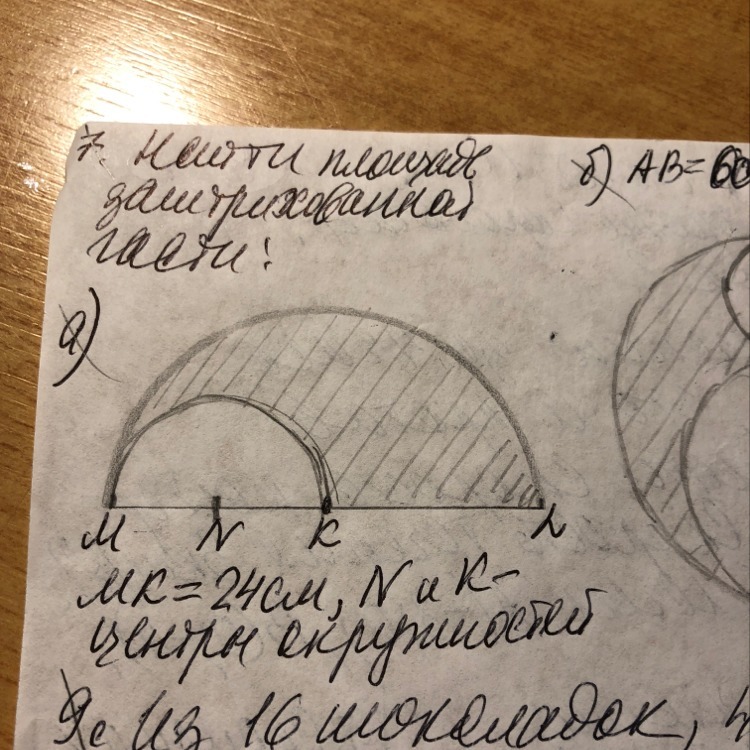 7. Найти площадь
заштрихованной
части:
б) AB=60
а)
M N K L
MK=24см, N и K-
центры окружностей
9. Из 16 шоколадок, 4